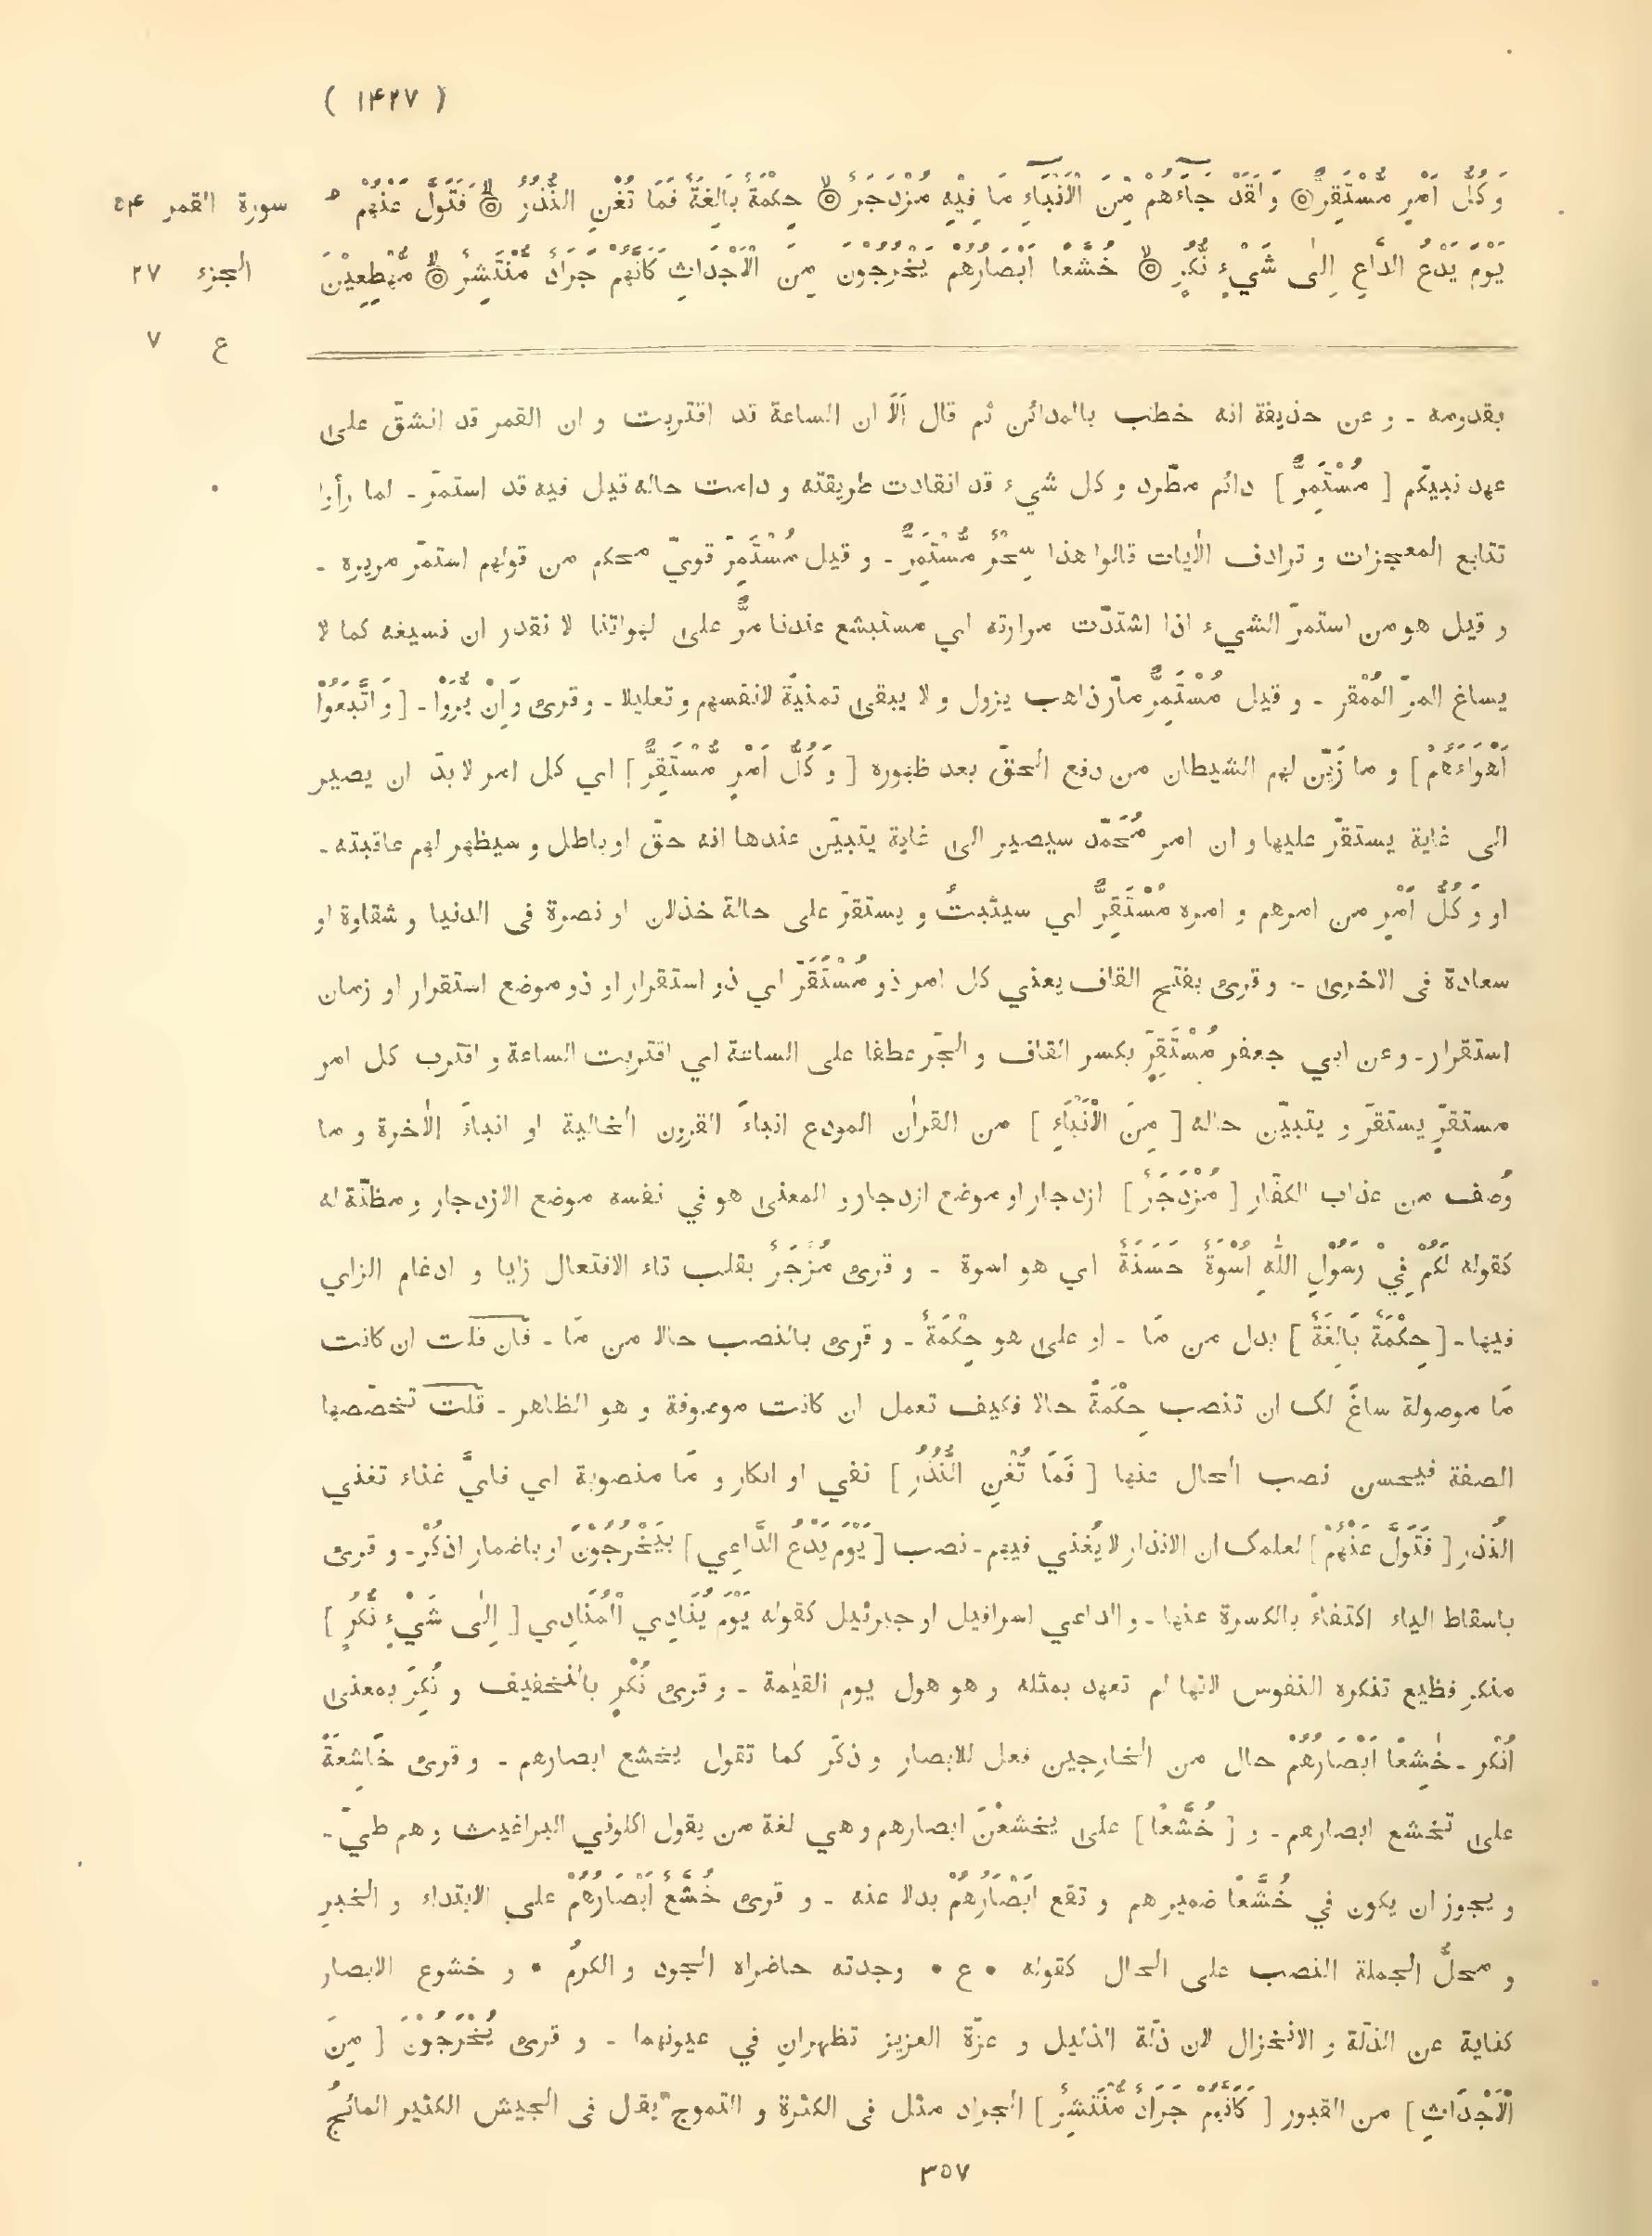 ( ١۴٢٧ )
وَكُلُّ اَمْرٍ مُّسْتَقِرٌّ ۞ وَلَقَدْ جَآءَهُمْ مِّنَ الْاَنْبَآءِ مَا فِيْهِ مُزْدَجَرٌ ۞ حِكْمَةٌ بَالِغَةٌ فَمَا تُغْنِ النُّذُرُ ۞ فَتَوَلَّ عَنْهُمْ م
سورة القمر ٥۴
يَوْمَ يَدْعُ الدَّاعِ اِلٰى شَيْءٍ نُّكُرٍ ۞ خُشَّعًا اَبْصَارُهُمْ يَخْرُجُوْنَ مِنَ الْاَجْدَاثِ كَاَنَّهُمْ جَرَادٌ مُّنْتَشِرٌ ۞ مُّهْطِعِيْنَ
الجزء ٢٧
ع ٧
بقدومه - و عن حذيفة انه خطب بالمدائن ثم قال اَلَا ان الساعة قد اقتربت و ان القمر قد انشقّ على
عهد نبيّكم [ مُسْتَمِرٌّ ] دائم مطّرد و كل شيء قد انقادت طريقته و دامت حاله قيل فيه قد استمرّ - لما رأوا
تتابع المعجزات و ترادف الاٰيات قالوا هذا سِحْرٌ مُّسْتَمِرٌّ - و قيل مُسْتَمِرّ قويّ محكم من قولهم استمرّ مريره -
و قيل هو من استمرّ الشيء اذا اشتدّت مرارته اي مستبشع عندنا مرٌّ على لهواتنا لا نقدر ان نسيغه كما لا
يساغ المرّ المُمْقر - و قيل مُسْتَمِرٌّ مارّ ذاهب يزول و لا يبقى تمنيةً لانفسهم و تعليلا - و قرئ وَاِنْ يُّرَوْا - [ وَاتَّبَعُوْا
اَهْوَاءَهُمْ ] و ما زَيّن لهم الشيطان من دفع الحقّ بعد ظهوره [ وَكُلُّ اَمْرٍ مُّسْتَقِرٌّ ] اي كل امر لا بدّ ان يصير
الى غاية يستقرّ عليها و ان امر مُحَمَّد سيصير الى غاية يتبيّن عندها انه حقّ او باطل و سيظهر لهم عاقبته -
او وَكُلُّ اَمْرٍ من امرهم و امره مُسْتَقِرٌّ اي سيثبتُ و يستقرّ على حالة خذلان او نصرة فى الدنيا و شقاوة او
سعادة فى الاخرى - و قرئ بفتح القاف يعني كل امر ذو مُسْتَقَرّ اي ذو استقرار او ذو موضع استقرار او زمان
استقرار - و عن ابي جعفر مُسْتَقِرٍّ بكسر القاف و الجّر عطفا على الساعة اي اقتربت الساعة و اقترب كل امر
مستقرّ يستقرّ و يتبيّن حاله [ مِنَ الْاَنْبَاءِ ] من القراٰن المودع انباءَ القرون الخالية او انباءَ الاٰخرة و ما
وُصف من عذاب الكفّار [ مُزْدَجَرٌ ] ازدجار او موضع ازدجار و المعنى هو في نفسه موضع الازدجار و مظنّة له
كقوله لَكُمْ فِيْ رَسُوْلِ اللّٰهِ اُسْوَةٌ حَسَنَةٌ اي هو اسوة - و قرئ مُزَّجَرٌ بقلب تاء الافتعال زايا و ادغام الزاي
فيها - [ حِكْمَةٌ بَالِغَةٌ ] بدل من مَا - او على هو حِكْمَةٌ - و قرئ بالنصب حالا من مَا - فان قلت ان كانت
مَا موصولة ساغ لك ان تنصب حِكْمَةً حالا فكيف تعمل ان كانت موصوفة و هو الظاهر - قلت تخصّصها
الصفة فيحسن نصب الحال عنها [ فَمَا تُغْنِ النُّذُرُ ] نفي او انكار و مَا منصوبة اي فايَّ غناء تغني
النُّذر [ فَتَوَلَّ عَنْهُمْ ] لعلمك ان الانذار لا يُغني فيهم - نصب [ يَوْمَ يَدْعُ الدَّاعِي ] بيَخْرُجُوْنَ او باضمار اذكُرْ - و قرئ
باسقاط الياء اكتفاءً بالكسرة عنها - و الداعي اسرافيل او جبرئيل كقوله يَوْمَ يُنَادِي الْمُنَادِي [ اِلٰى شَيْءٍ نُّكُرٍ ]
منكر فظيع تنكره النفوس لانها لم تعهد بمثله و هو هول يوم القيٰمة - و قرئ نُكْرٍ بالتخفيف و نُكِرَ بمعنى
اُنْكر - خٰشِعًا اَبْصَارُهُمْ حال من الخارجين فعل للابصار و ذكّر كما تقول يخشع ابصارهم - و قرئ خَاشِعَةً
على تخشع ابصارهم - و [ خُشَّعًا ] على يخشعْنَ ابصارهم و هي لغة من يقول اكلوني البراغيث و هم طيّ -
و يجوز ان يكون في خُشَّعًا ضمير هم و تقع اَبْصَارُهُمْ بدلا عنه - و قرئ خُشَّعٌ اَبْصَارُهُمْ على الابتداء و الخبر
و محلُّ الجملة النصب على الحال كقوله • ع • وجدته حاضراه الجود و الكرمُ • و خشوع الابصار
كناية عن الذلّة و الانخزال لان ذلّة الذليل و عزّة العزيز تظهران في عيونهما - و قرئ يُخْرَجُوْنَ [ مِنَ
الْاَجْدَاثِ ] من القبور [ كَاَنَّهُمْ جَرَادٌ مُّنْتَشِرٌ ] الجراد مثل فى الكثرة و التموج يقال فى الجيش الكثير المائج
٣٥٧